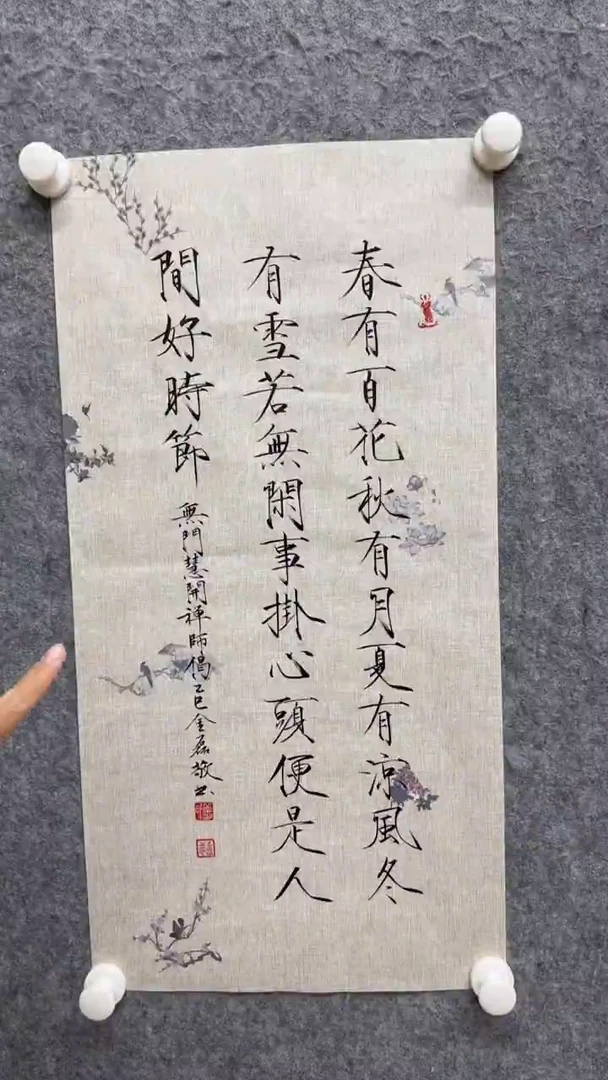 春有百花秋有月夏有涼風冬
有雪若無閑事掛心頭便是人
間好時節
無門慧開禪師偈乙巳金磊敬书